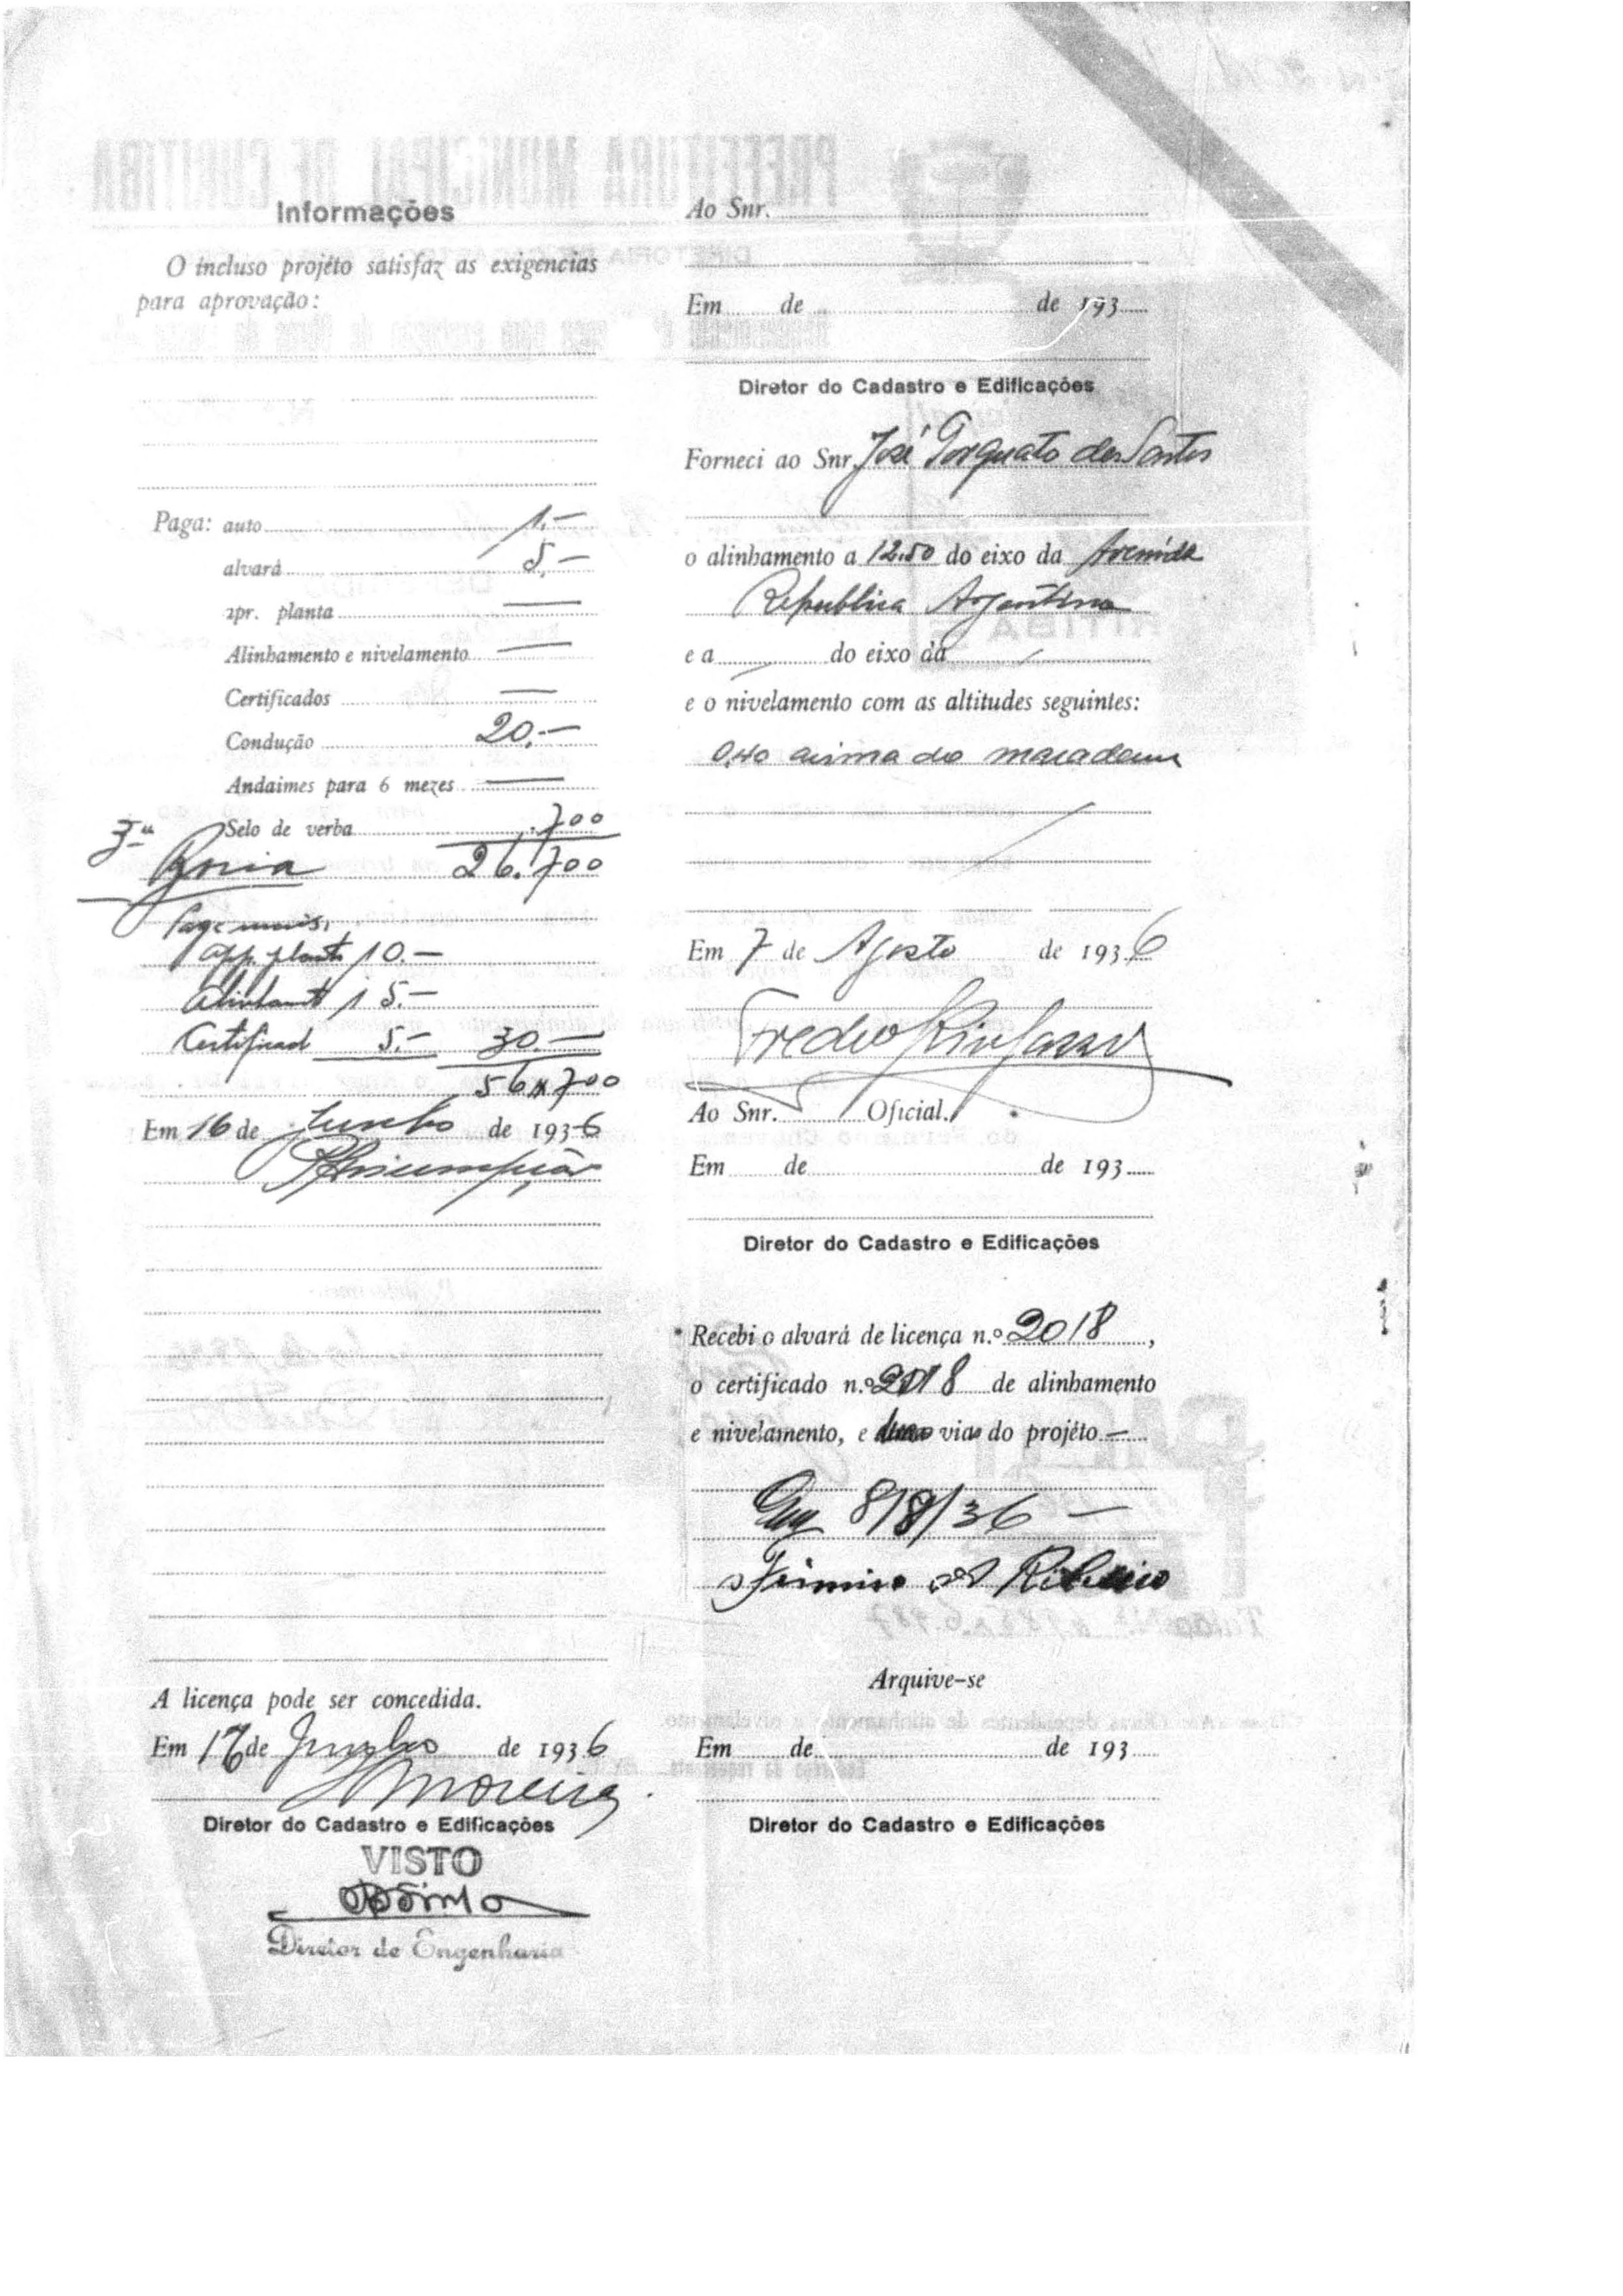 Informações
O incluso projéto satisfaz as exigencias
para aprovação:
Paga: auto 1.—
alvará 5.—
apr. planta —
Alinhamento e nivelamento —
Certificados —
Condução 20.—
Andaimes para 6 mezes —
Selo de verba .700
3ª
26.700
Paga mais,
app. plant 10.—
Alinhamt 15.—
Certificad 5.— 30.—
56.700
Em 16 de Junho de 1936
A licença pode ser concedida.
Em 17 de Junho de 1936
Moreira
Diretor do Cadastro e Edificações
VISTO
Diretor de Engenharia
Ao Snr.
Em de de 193
Diretor do Cadastro e Edificações
Forneci ao Snr. José Torquato dos Santos
o alinhamento a 12.50 do eixo da Avenida
Republica Argentina
e a do eixo da
e o nivelamento com as altitudes seguintes:
0,40 acima do macadam
Em 7 de Agosto de 1936
Ao Snr. Oficial.
Em de de 193
Diretor do Cadastro e Edificações
Recebi o alvará de licença n.º 2018,
o certificado n.º 2018 de alinhamento
e nivelamento, e duas vias do projéto —
8/8/36 —
Firmino Ribeiro
Arquive-se
Em de de 193
Diretor do Cadastro e Edificações
PREFEITURA MUNICIPAL DE CURITIBA